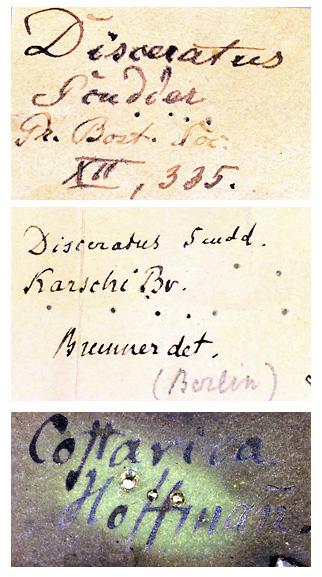 Disceratus
Scudder
Pr. Bost. Soc.
XII, 335.
Disceratus Scudd.
Karschi Br.
Brunner det.
(Berlin)
Costarica
Hoffmañ.